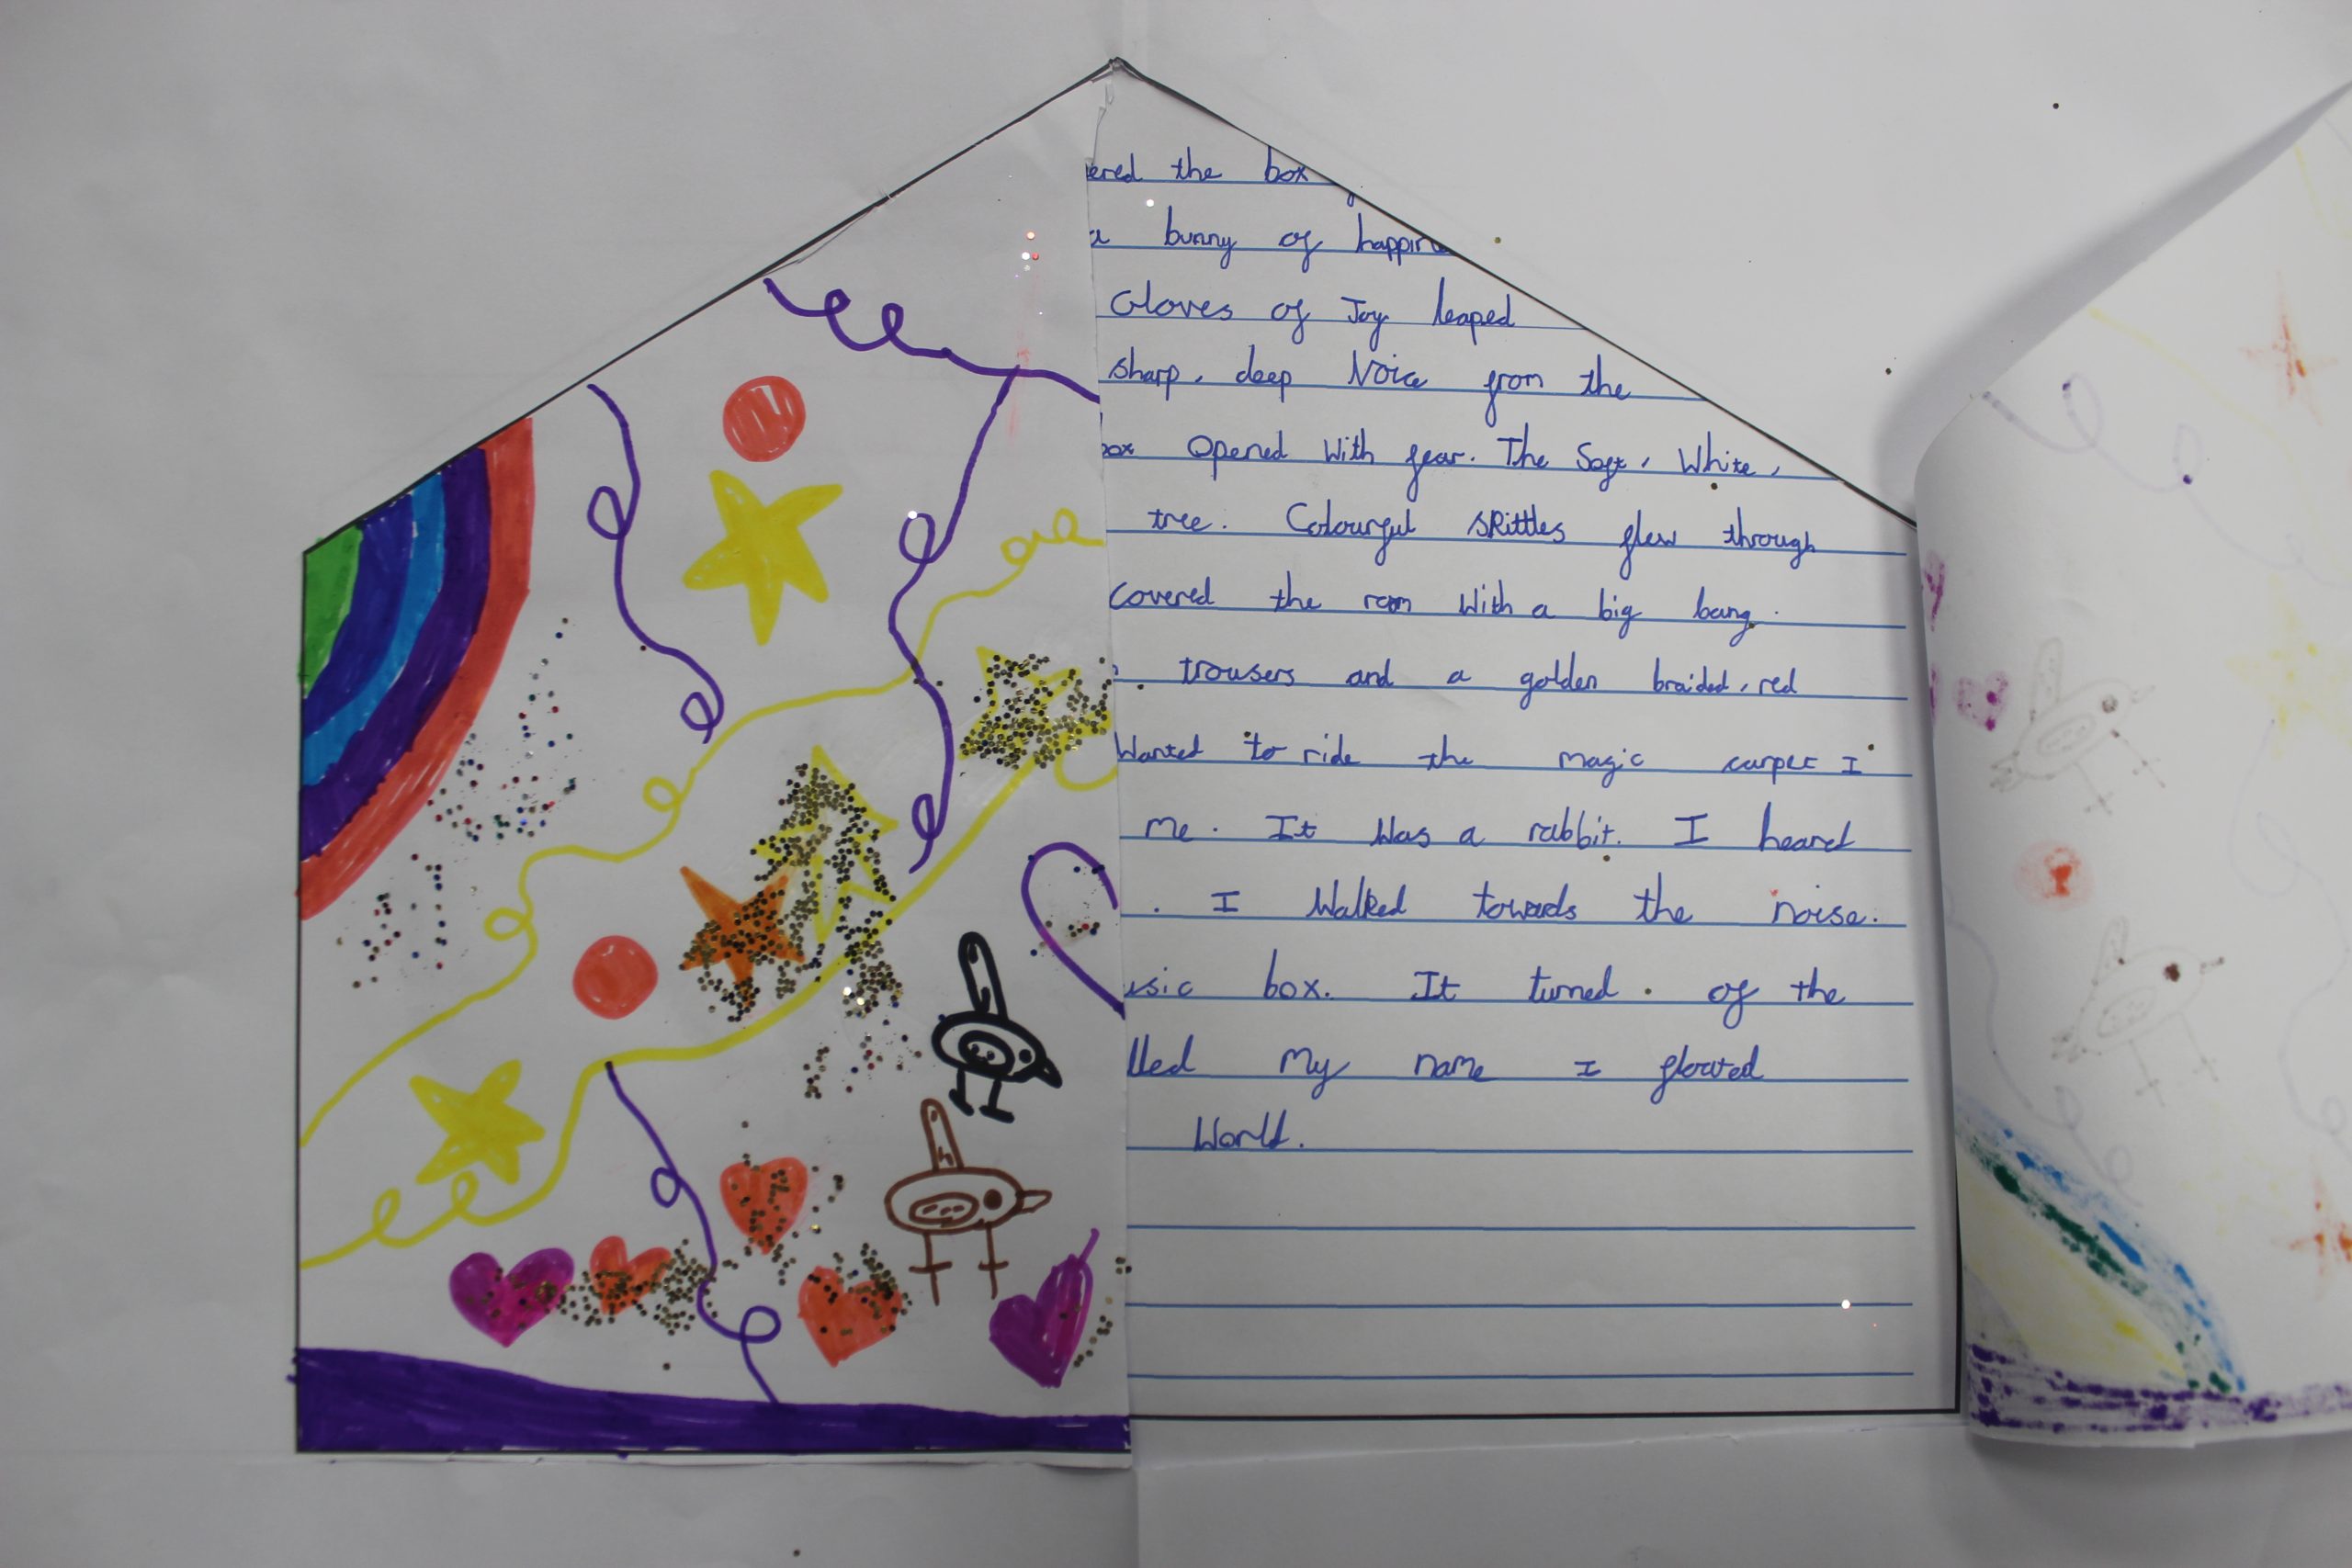 ered the box
a bunny of happin
Gloves of Joy leaped
sharp, deep Noice from the
box Opened With fear. The Soft, White,
tree. Colourful skittles flew through
covered the room With a big bang.
trousers and a golden braided, red
Wanted to ride the magic carpet I
me. It Was a rabbit. I heard
. I Walked towards the noise.
usic box. It turned of the
lled My name I floated
World.